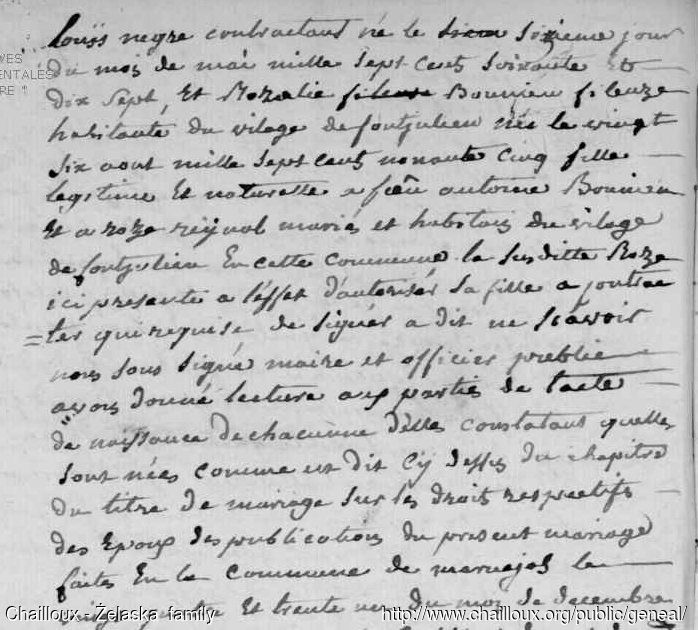 Louis negre contractant né le sixieme jour
du mois de mai mille sept cent soixante et
dix sept, et Rozalie Bounieu fileuze
habitante du vilage de fontjulien née le vingt
six aout mille sept cent nonante cinq fille
legitime et naturelle a feû antoine Bounieu
et a roze reynal mariés et habitans du vilage
de fontjulien En cette Commune la susditte Roze
ici presente a l'effet d'autoriser sa fille a contrac
=ter qui requise de signer a dit ne scavoir
nous sous signé maire et officier publie
avons donné lecture aux parties de l'acte
de naissance de chacunne d'elles constatant quelles
sont nées comme est dit cy dessus du chapitre
du titre de mariage sur les droits respectifs
des Epoux des publications du present mariage
faites En la Commune de maruejol le
et trente un du mois de decembre
VES
ENTALES
RE "
Chailloux - Żelaska family
http://www.chailloux.org/public/geneal/